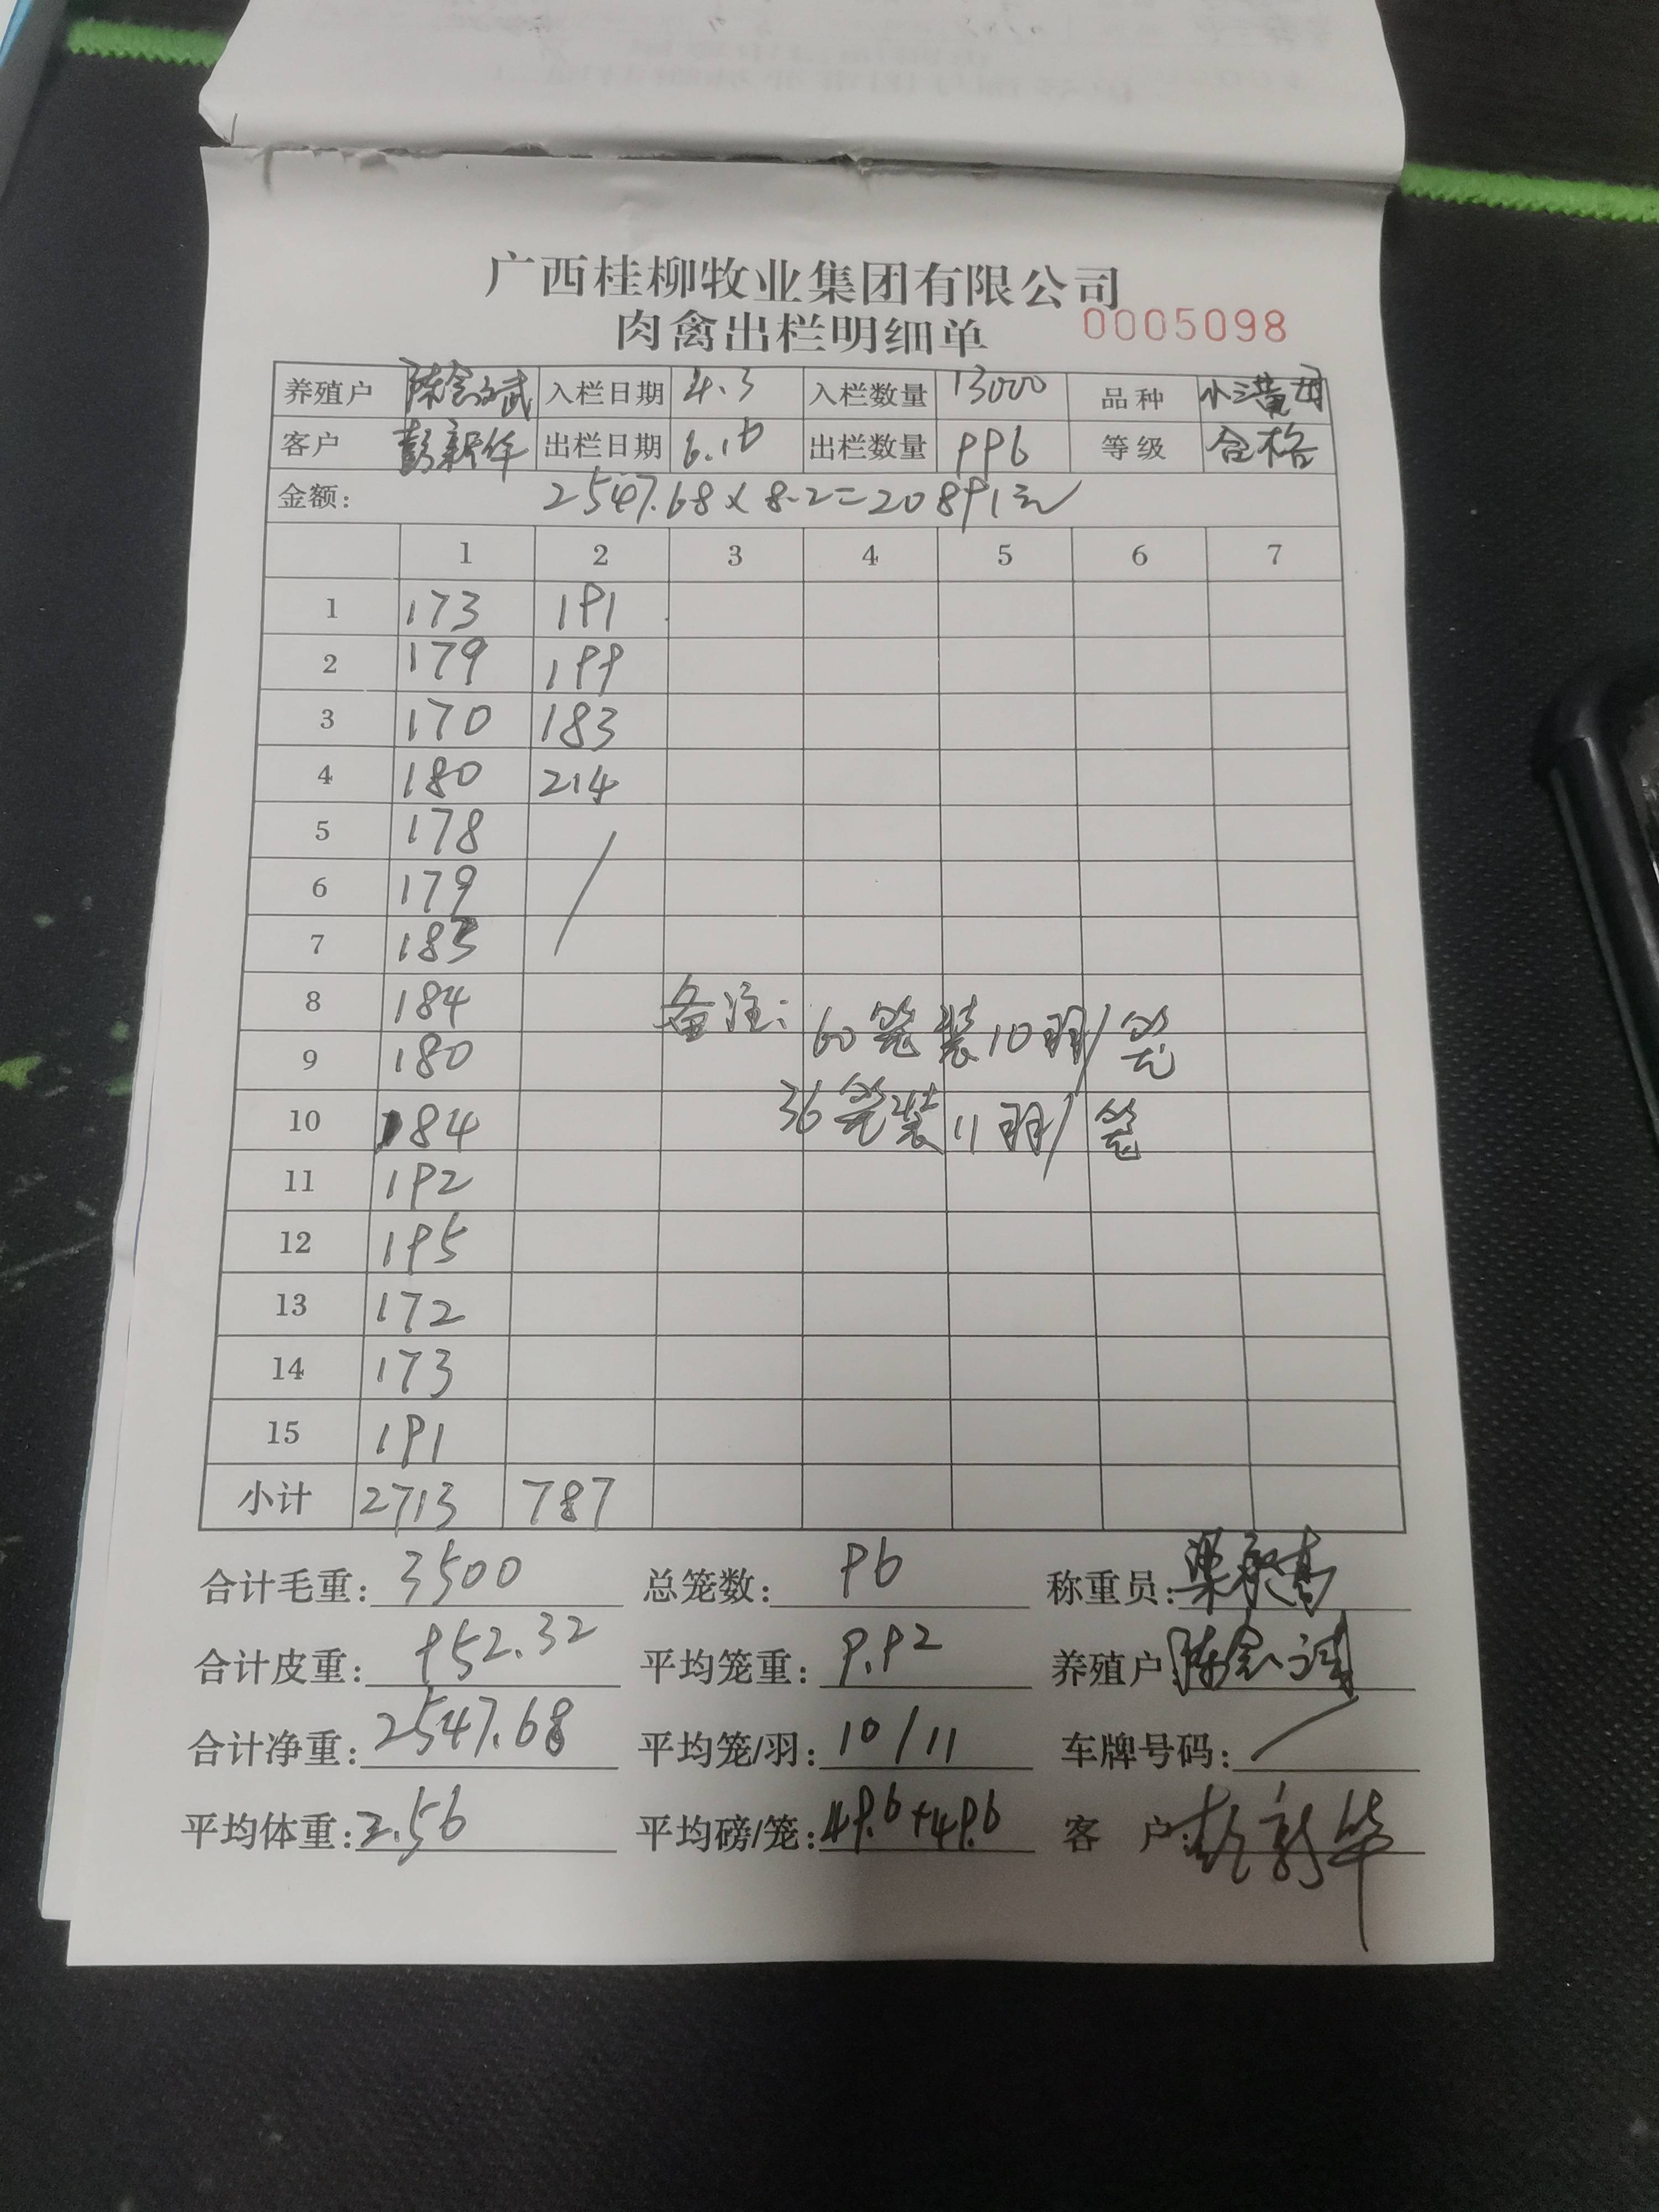 广西桂柳牧业集团有限公司
肉禽出栏明细单 0005098
养殖户 陈念武 入栏日期 4.3 入栏数量 13000 品种 小三黄母
客户 彭新华 出栏日期 6.16 出栏数量 996 等级 合格
金额: 2547.68×8.2=20891元
1 2 3 4 5 6 7
1 173 191
2 179 199
3 170 183
4 180 214
5 178
6 179
7 183
8 184 备注: 60笼装10羽/笼
9 180
10 184 36笼装11羽/笼
11 192
12 195
13 172
14 173
15 191
小计 2713 787
合计毛重: 3500 总笼数: 96 称重员:
合计皮重: 952.32 平均笼重: 9.92 养殖户
合计净重: 2547.68 平均笼/羽: 10/11 车牌号码:
平均体重: 2.56 平均磅/笼: 4P.6+4P.6 客 户: 彭新华